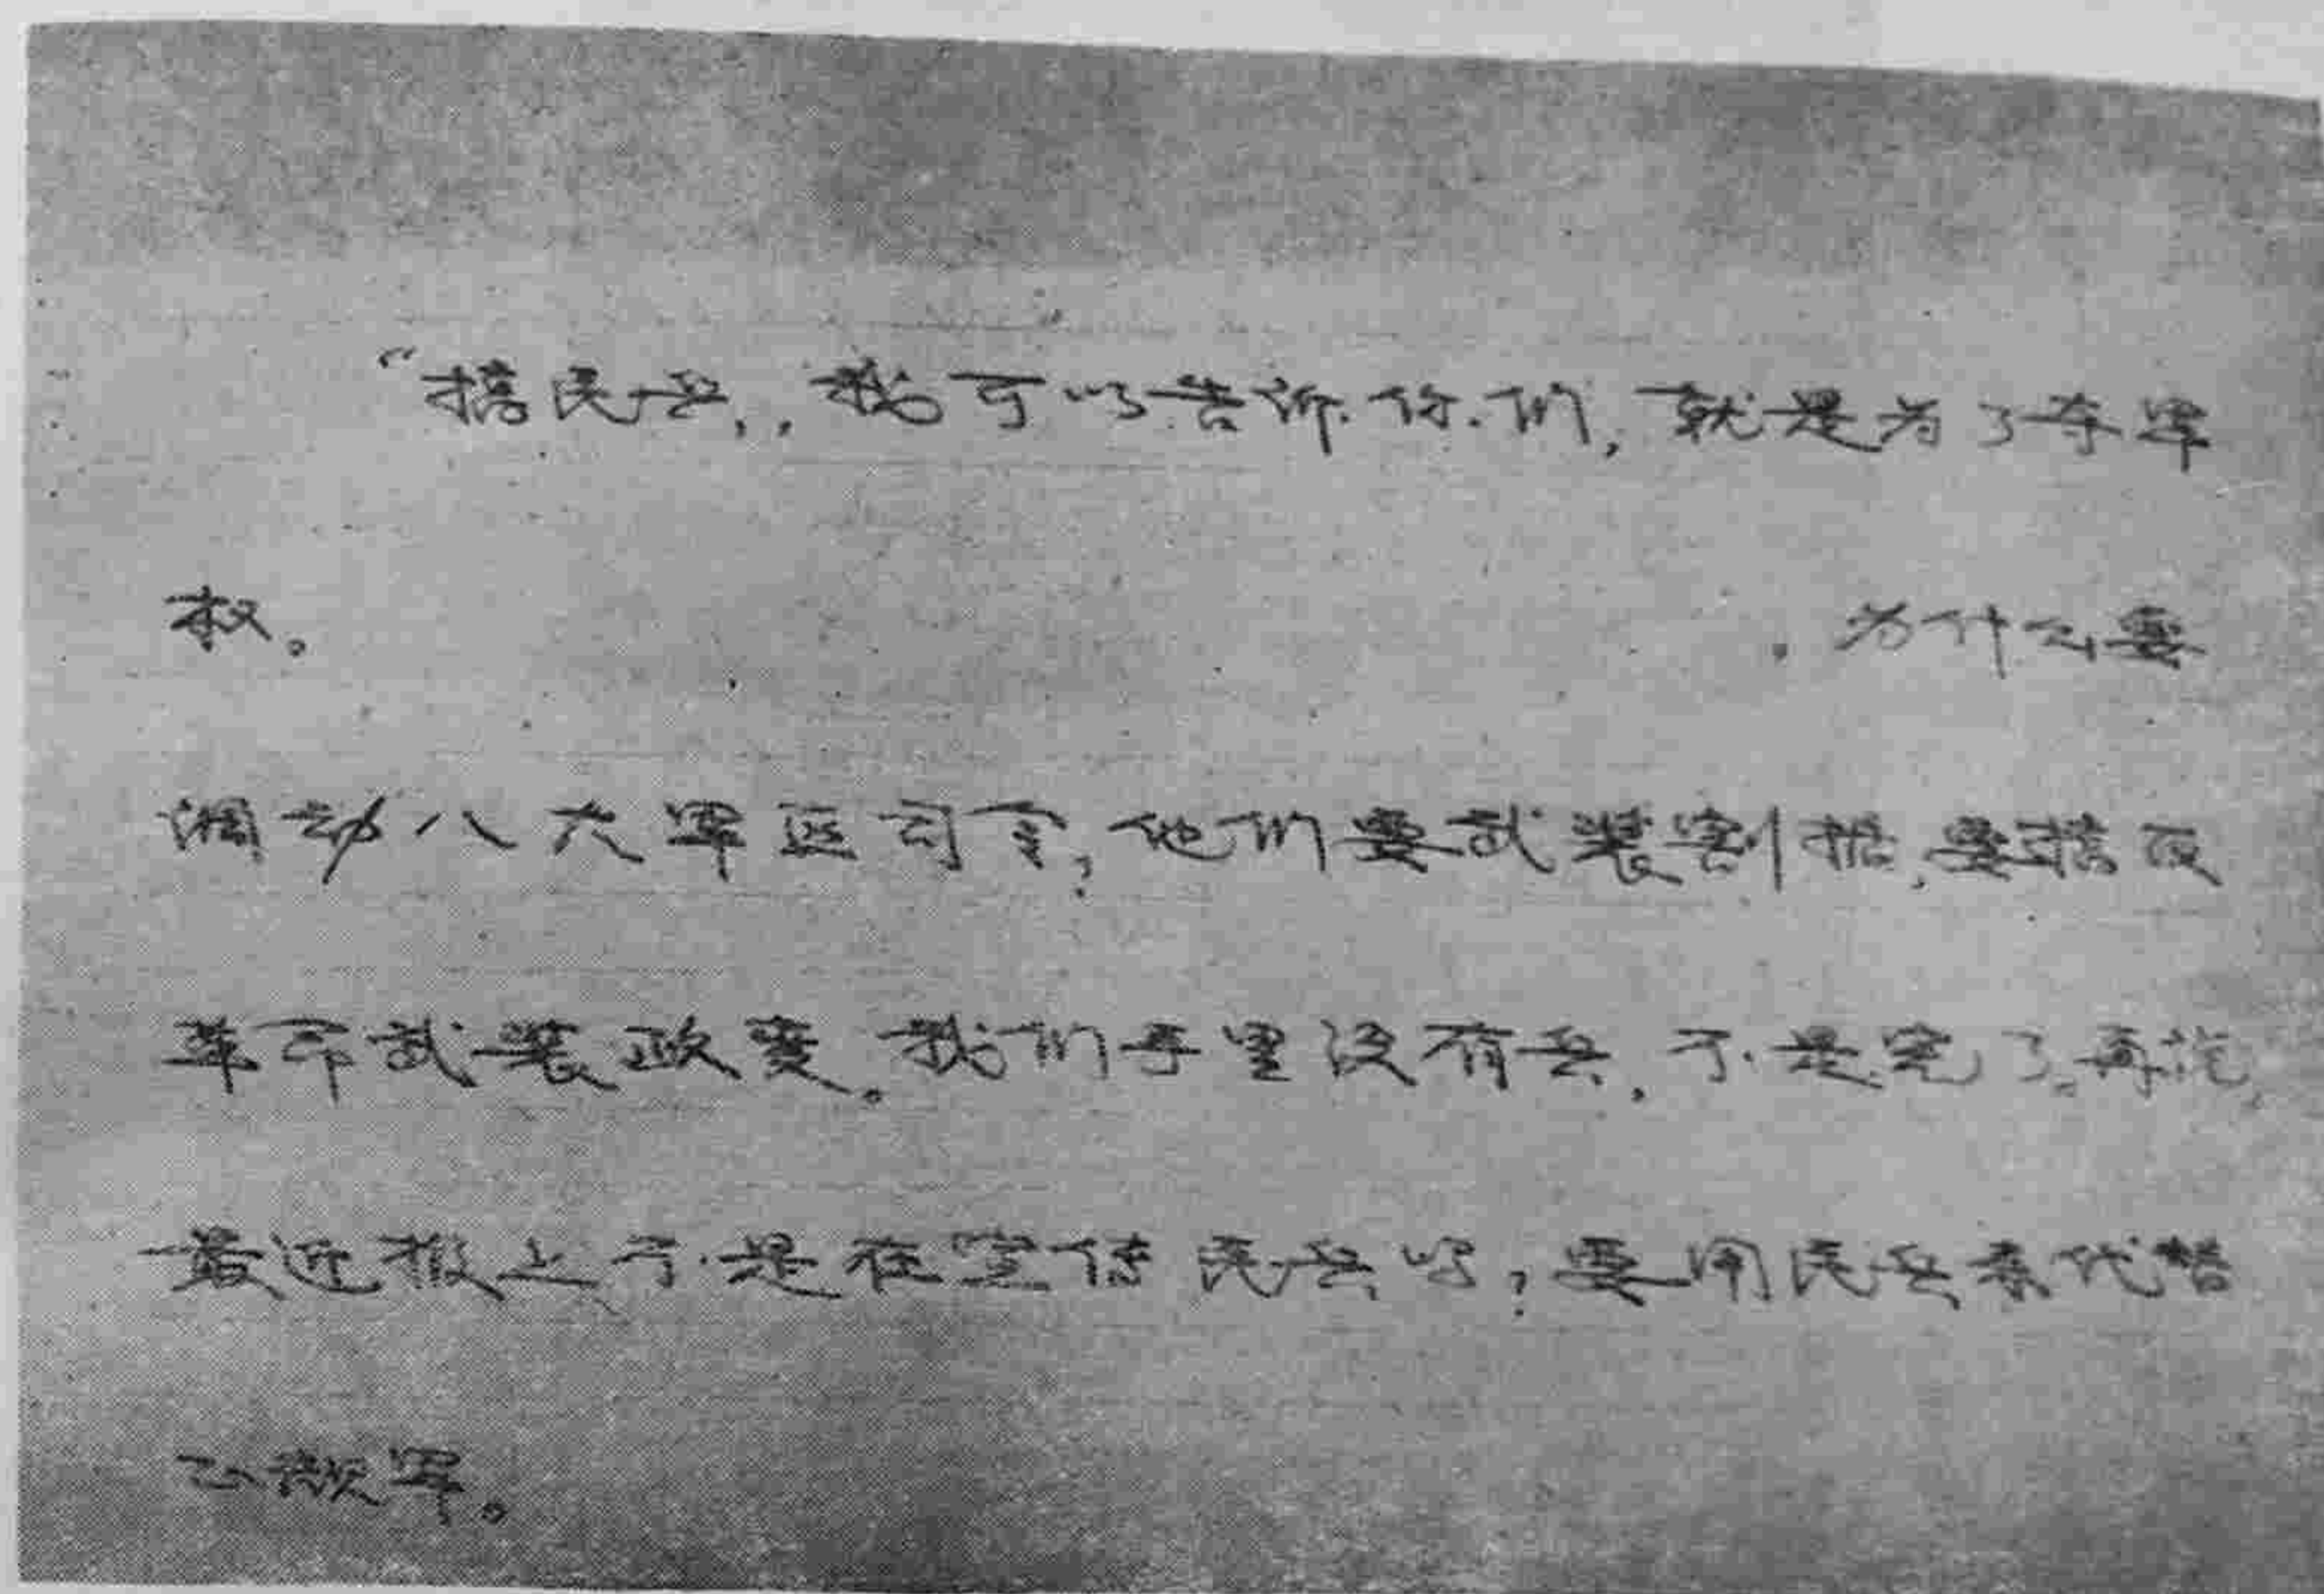 “搞民兵，，我可以告诉你们，就是为了夺军
权。 为什么要
调动八大军区司令？他们要武装割据，要搞反
革命武装政变。我们手里没有兵，不是完了。再说，
最近报上不是在宣传民兵吗？要用民兵来代替
正规军。